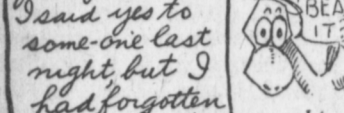 I said yes to
some-one last
night, but I
had forgotten
BEA
IT